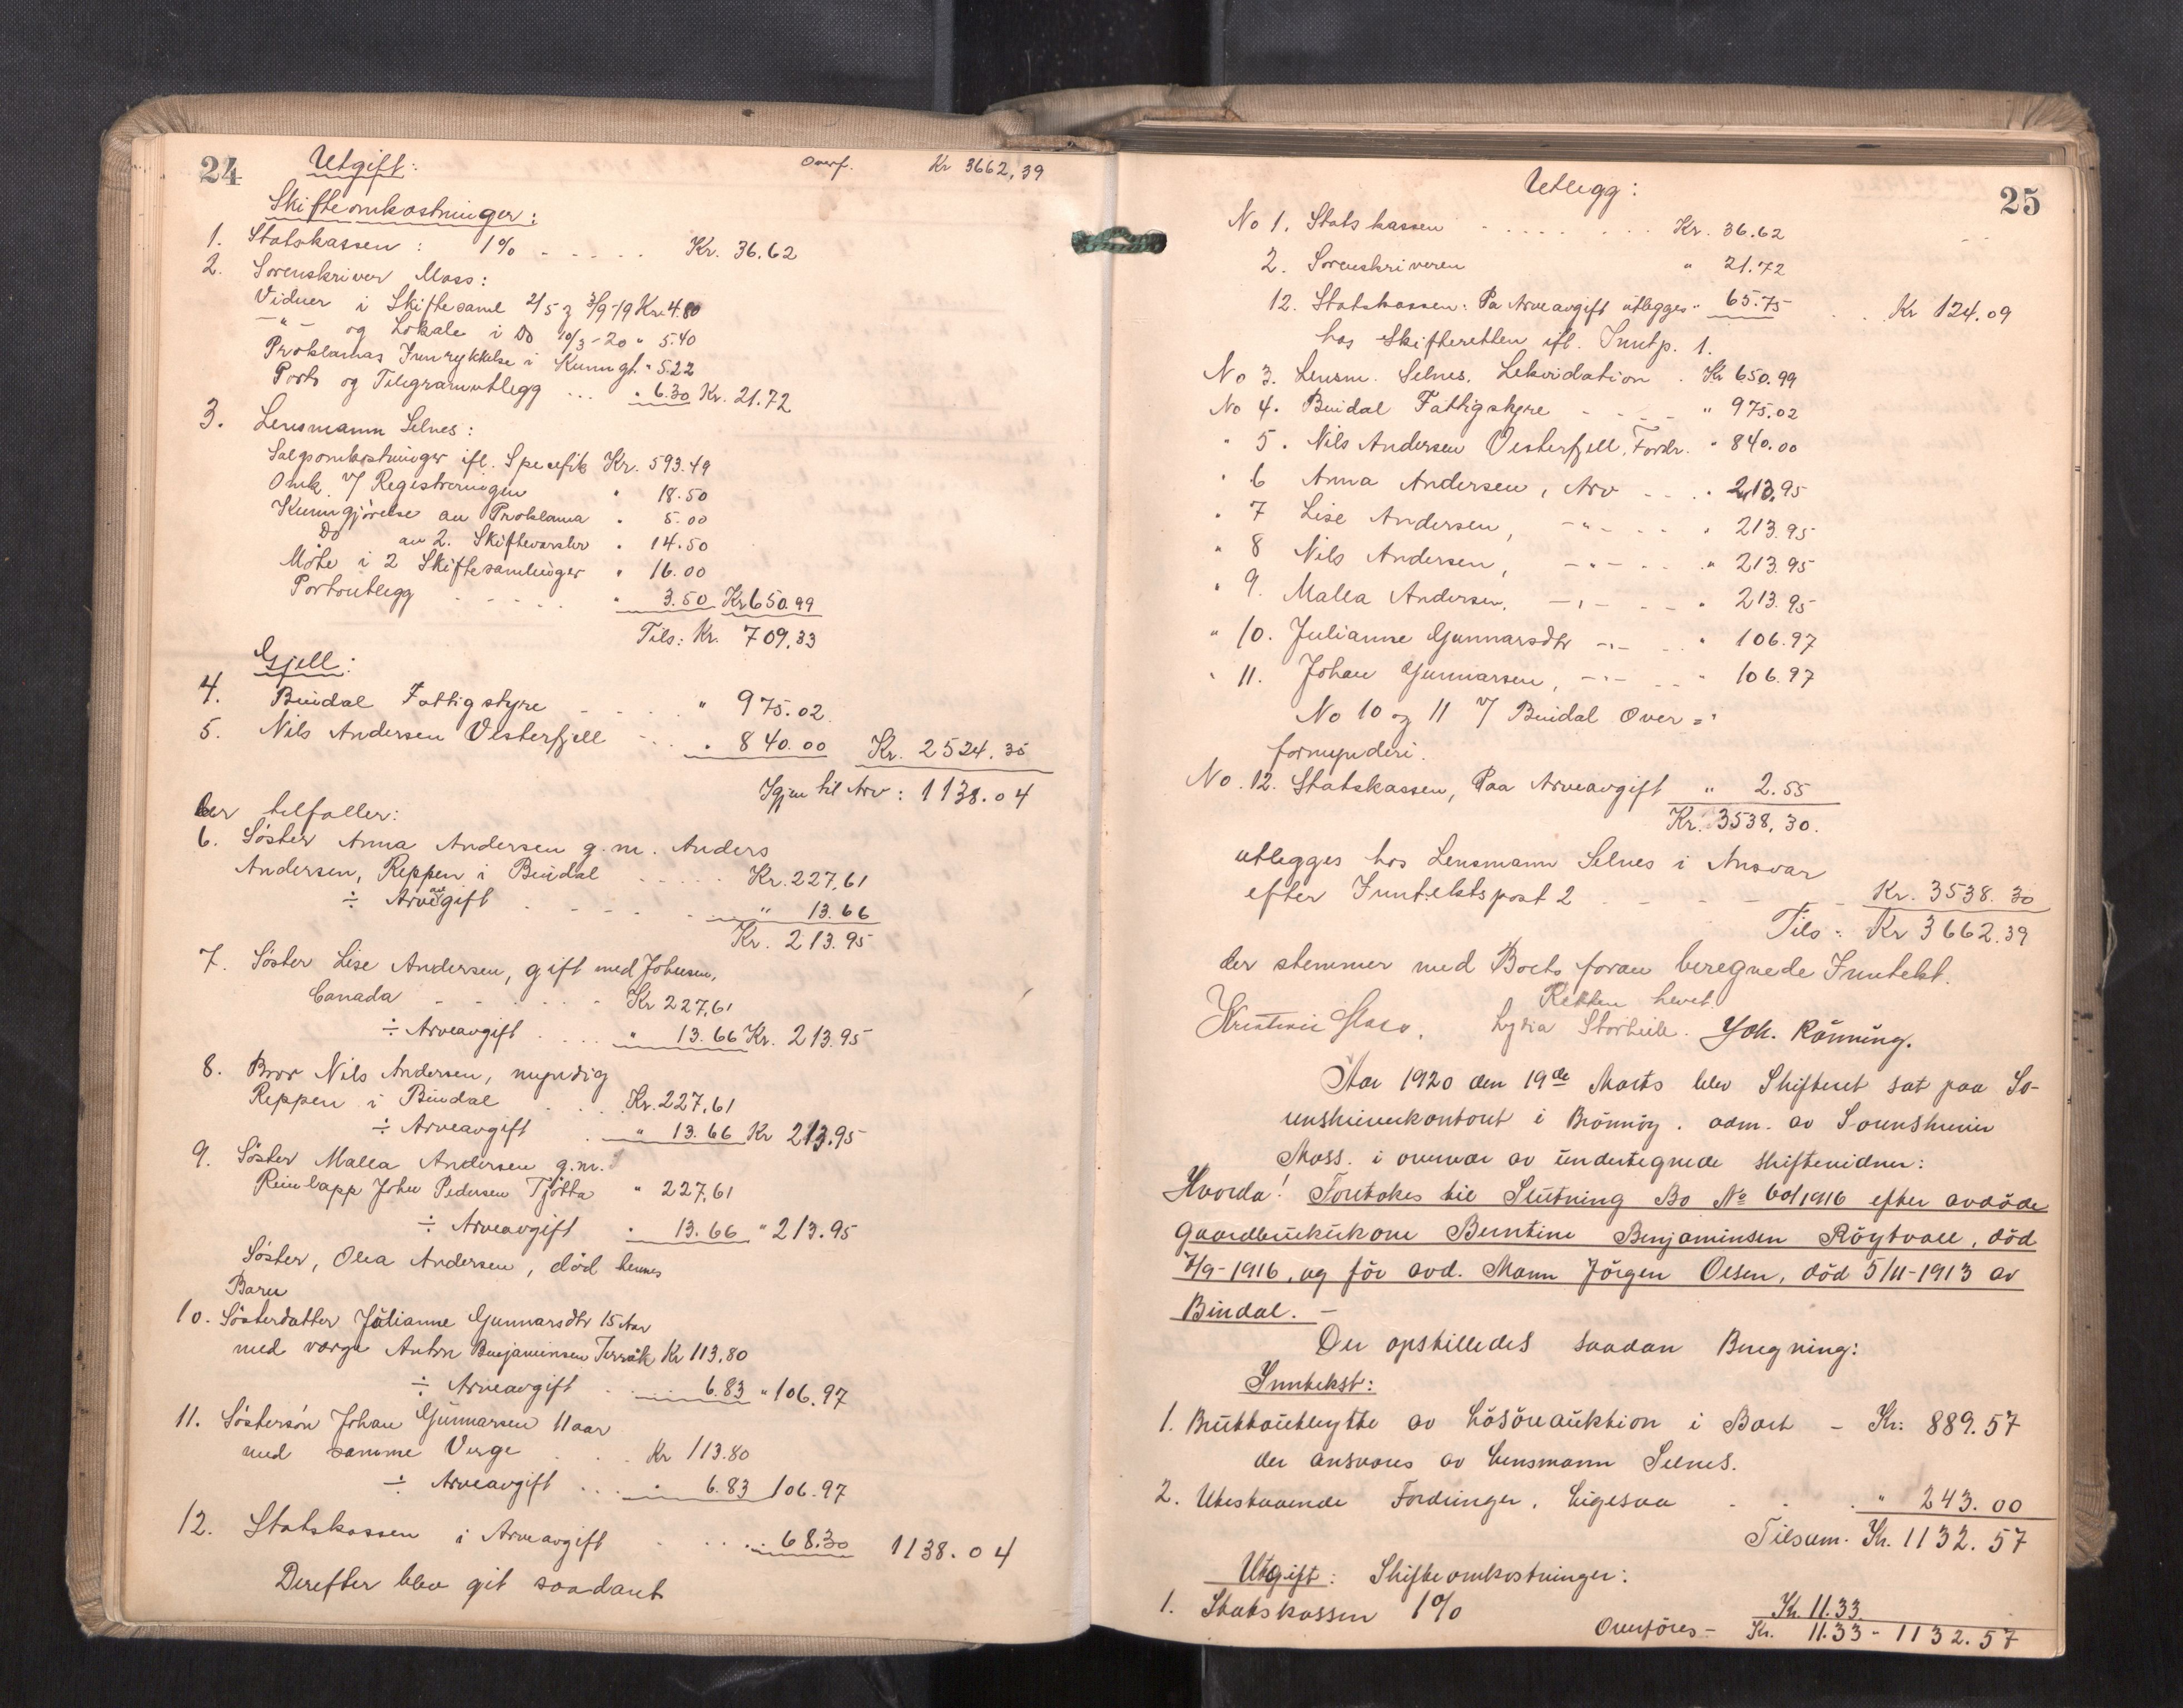 24
Utgift:
Overf. Kr 3662,39
Skifteomkostninger:
1. Statskassen: 1% - - - - - Kr. 36.62
2. Sorenskriver Moss:
Vidner i Skiftesaml 2/5 og 3/9-19 Kr. 4.80
-"- og Lokale i Do 10/3-20 " 5.40
Proklamas Innrykkelse i Kunngt. " 5.22
Porto og Telegramutlegg ... " 6.30 Kr. 21.72
3. Lensmann Selnes:
Salgsomkostninger ifl. Specifik Kr. 593.49
Omk. v/ Registreringen " 18.50
Kunngjørelse av Proklama " 5.00
Do av 2. Skiftevarsler " 14.50
Møte i 2 Skiftesamlinger " 16.00
Portoutlegg - - - - - " 3.50 Kr 650.99
Tils: Kr. 709.33
Gjell:
4. Bindal Fattigstyre - - - - " 975.02
5. Nils Andersen Vesterfjell - . . " 840.00 Kr. 2524.35
Igjen til Arv: 1138.04
der tilfaller:
6. Søster Anna Andersen g.m. Anders
Andersen, Reppen i Bindal - - - - - Kr. 227,61
÷ Arveavgift - - - - - " 13.66
Kr. 213.95
7. Søster Lise Andersen, gift med Johnsen,
Canada - - - - - - Kr 227,61
÷ Arveavgift . . . . " 13.66 Kr. 213.95
8. Bror Nils Andersen, myndig
Reppen i Bindal . . . Kr. 227,61
÷ Arveavgift . - " 13.66 Kr 213.95
9. Søster Malla Andersen g.m.
Reinlapp John Pedersen Tjøtta " 227,61
÷ Arveavgift " 13.66 " 213.95
Søster, Olea Andersen, død hennes
Barn
10. Søsterdatter Julianne Gunnarsdtr 15 Aar
med værge Anton Benjaminsen Terråk Kr 113,80
÷ Arveavgift . . . . 6.83 " 106,97
11. Søstersøn Johan Gunnarsen 11 aar
med samme Verge . . . Kr 113.80
÷ Arveavgift . . . " 6.83 106.97
12. Statskassen i Arveavgift . . . . 68.30 1138.04
Derefter blev git saadant
25
Utlegg:
No 1. Statskassen - . . . . . . . Kr. 36.62
2. Sorenskriveren " 21.72
12. Statskassen: Pa Arveavgift utlegges " 65.75 . . Kr 124.09
hos Skifteretten ifl. Inntp. 1.
No 3. Lensm. Selnes. Lekvidation . Kr 650.99
No 4. Bindal Fattigstyre - - - - " 975.02
" 5. Nils Andersen Vesterfjell, Fordr. " 840.00
" 6 Anna Andersen, Arv - - . " 213.95
" 7 Lise Andersen, -"- - - " 213.95
" 8 Nils Andersen, -"- - - " 213.95
" 9. Malla Andersen, -"- - - " 213.95
" 10. Julianne Gunnarsdtr -"- - " 106.97
" 11. Johan Gunnarsen, -"- - - " 106.97
No 10 og 11 v/ Bindal Over="
formynderi.
No. 12. Statskassen, Paa Arveavgift " 2.55
Kr. 3538,30.
utlegges hos Lensmann Selnes i Ansvar
efter Inntektspost 2 - - - - - Kr. 3538.30
Tils: Kr 3662.39
der stemmer med Boets foran beregnede Inntekt.
Retten hevet.
Kristian Moss. Lydia Storheile. Joh. Rønning.
Aar 1920 den 19de Marts blev Skifteret sat paa So-
renskriverkontoret i Brønnøy. adm. av Sorenskriver
Moss. i overvær av undertegnede skiftevidner:
Hvorda! Foretokes til Slutning Bo No 60/1916 efter avdøde
gaardbrukerkone Berntine Benjaminsen Røytvoll, død
7/9-1916, og før avd. Mann Jørgen Olsen, død 5/11-1913 av
Bindal. -
Der opstilledes saadan Beregning:
Inntekst:
1. Bruttoutbytte av Løsøreauktion i Boet - Kr: 889.57
der ansvares av Lensmann Selnes.
2. Utestaaende Fordringer, Ligesaa - - . " 243.00
Tilsam. Kr. 1132.57
Utgift: Skifteomkostninger:
1. Statskassen 1% Kr. 11.33
Overføres - Kr. 11.33 " 1132.57